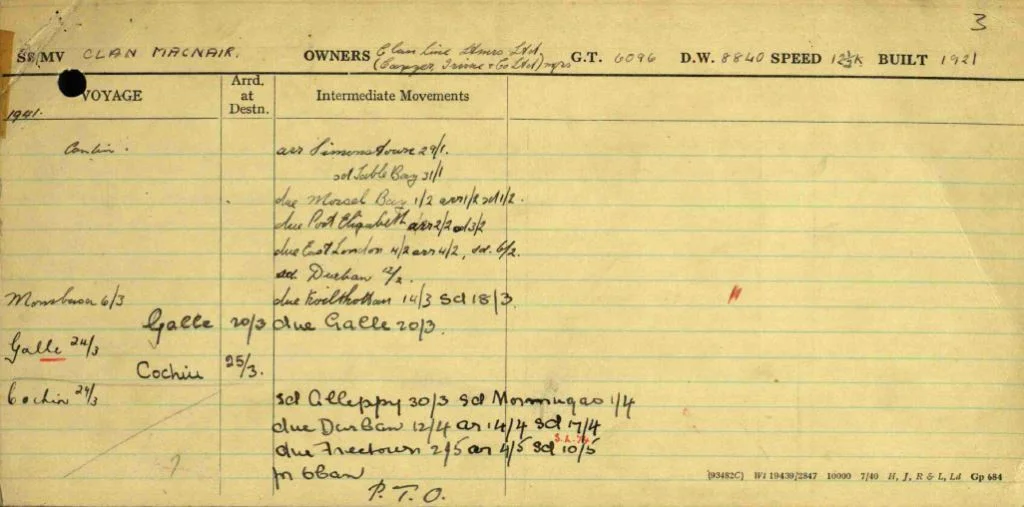 3
SS/MV CLAN MACNAIR. OWNERS Clan Line Stmrs Ltd. G.T. 6096 D.W. 8840 SPEED 12½K BUILT 1921
(Cayzer, Irvine & Co Ltd) mgrs
VOYAGE Arrd. at Destn. Intermediate Movements
1941.
Contin. arr Simonstown 29/1.
sd Table Bay 31/1
due Mossel Bay 1/2 arr 1/2 sd 1/2.
due Port Elizabeth arr 2/2 sd 3/2
due East London 4/2 arr 4/2, sd. 6/2.
sd. Durban 12/2.
Mombasa 6/3 due Koilthottam 14/3 sd 18/3
Galle 20/3 due Galle 20/3.
Galle 24/3
Cochin 25/3.
Cochin 29/3 sd Alleppy 30/3 sd Mormugao 1/4
due Durban 12/4 ar 14/4 sd 17/4
due Freetown 2/5 ar 4/5 sd 10/5
S.L. 74
for Oban
P.T.O.
(93482C) Wt 19439/2847 10000 7/40 H, J, R & L, Ld Gp 684